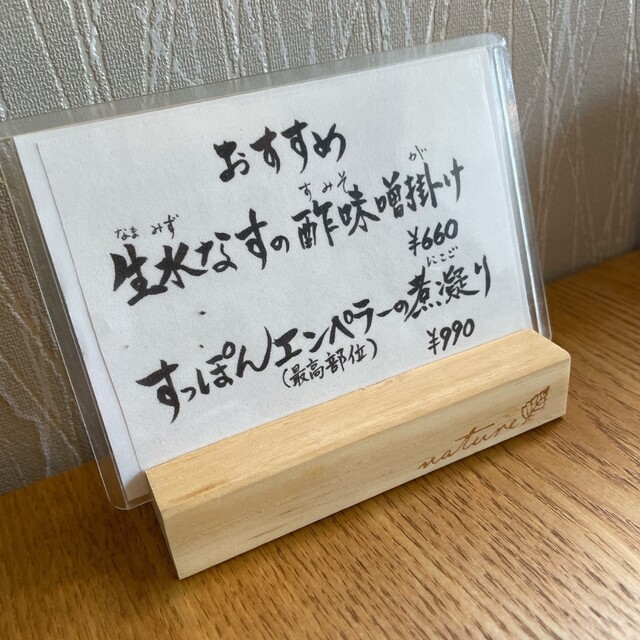 おすすめ
なま みず すみそ が
生水なすの酢味噌掛け
¥660
にこご
すっぽんエンペラーの煮凝り
(最高部位)
¥990
nature